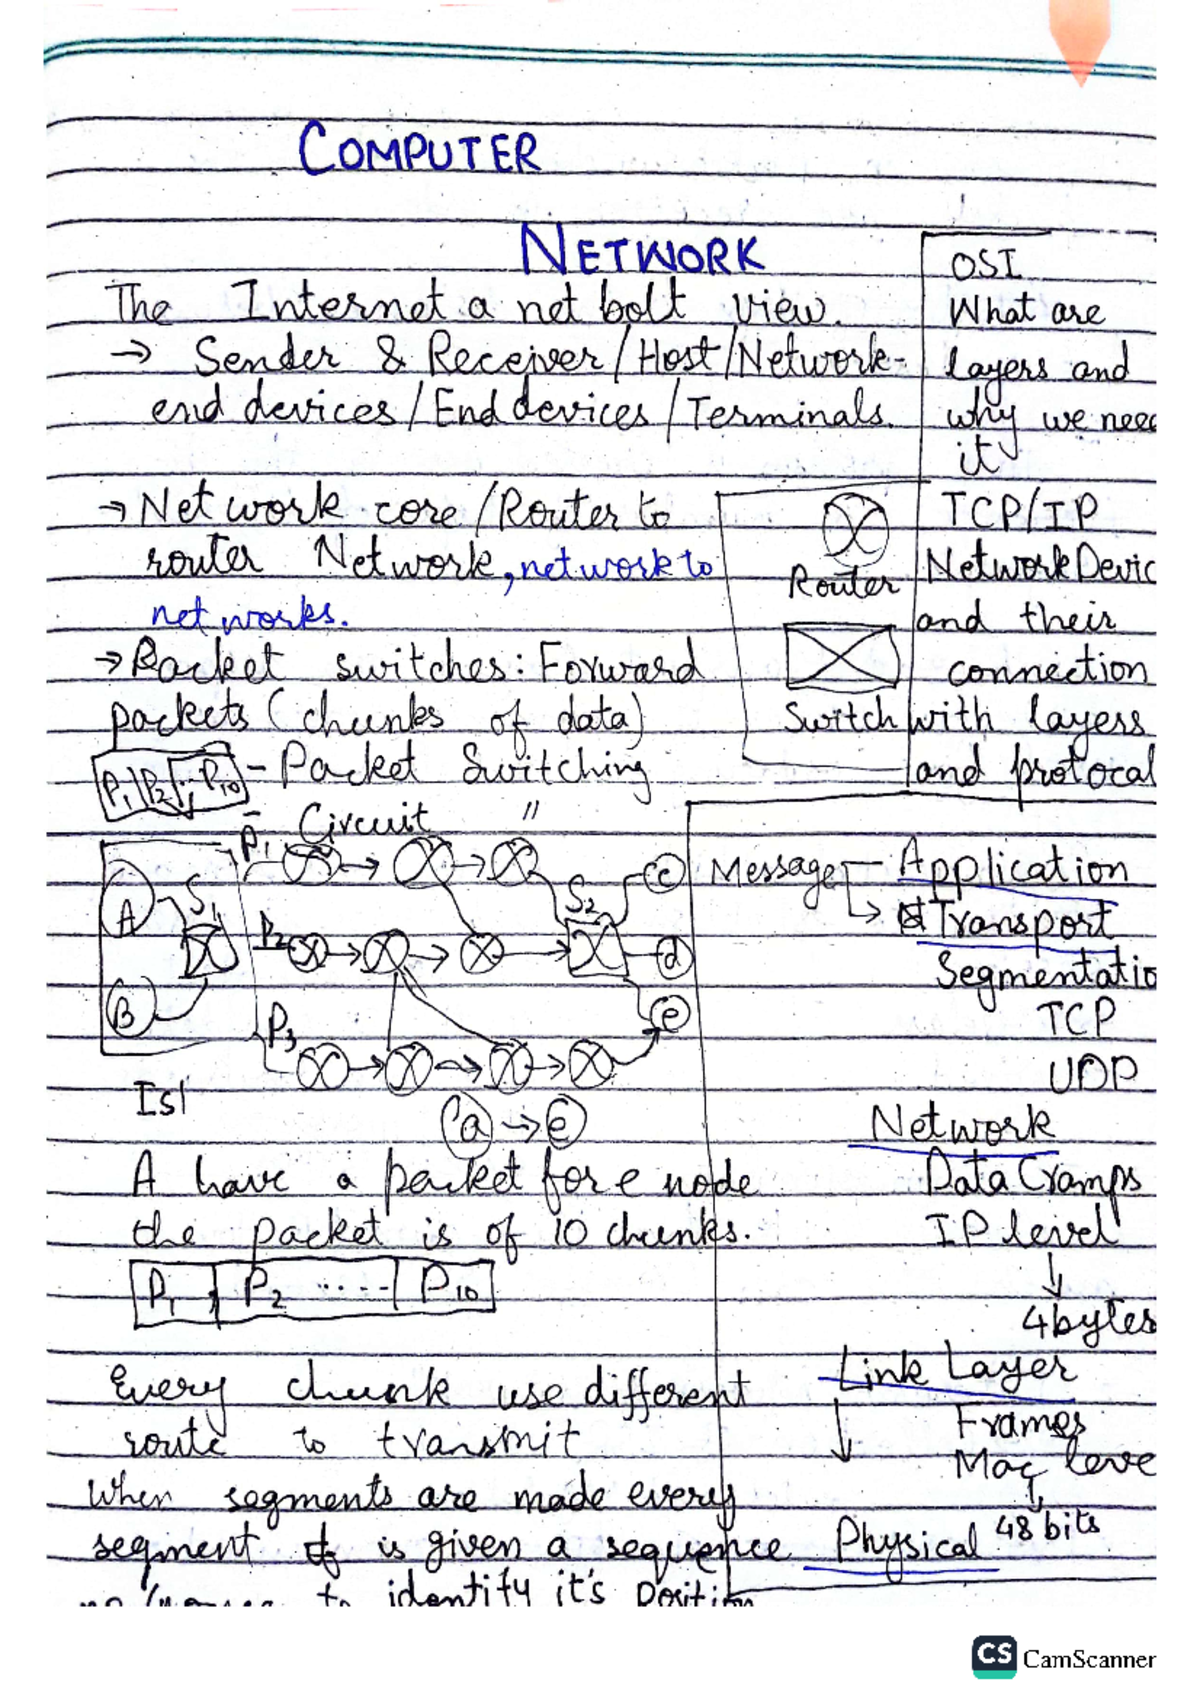 COMPUTER
NETWORK
The Internet a net bolt view.
→ Sender & Receiver/Host/Network-
end devices/End devices/Terminals.
→ Network core/Router to
router Network, network to
networks.
→ Packet switches: Forward
packets (chunks of data)
P1 P2 P10 - Packet Switching
- Circuit "
OSI
What are
layers and
why we need
it
TCP/IP
Network Devic
and their
connection
with layers
and protocal
Router
Switch
A
B
S1
P1
P2
P3
S2
c
d
e
Isl
a → e
A have a packet for e node
the packet is of 10 chunks.
P1 P2 ..... P10
Every chunk use different
route to transmit
When segments are made every
segment is given a sequence
to identify it's position
Message Application
→ Transport
Segmentatio
TCP
UDP
Network
Data Gramps
IP level
↓
4 bytes
Link Layer
↓ Frames
Mac leve
48 bits
Physical
CS CamScanner